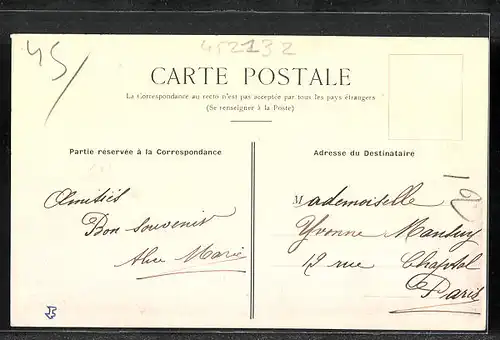 45
452132
CARTE POSTALE
La Correspondance au recto n'est pas acceptée par tous les pays étrangers
(Se renseigner à la Poste)
Partie réservée à la Correspondance
Adresse du Destinataire
Amitiés
Bon souvenir
Marie
Mademoiselle
Yvonne
12 rue Chaptal
Paris